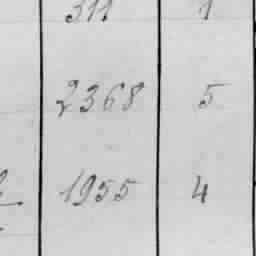 311 1
2368 5
1955 4